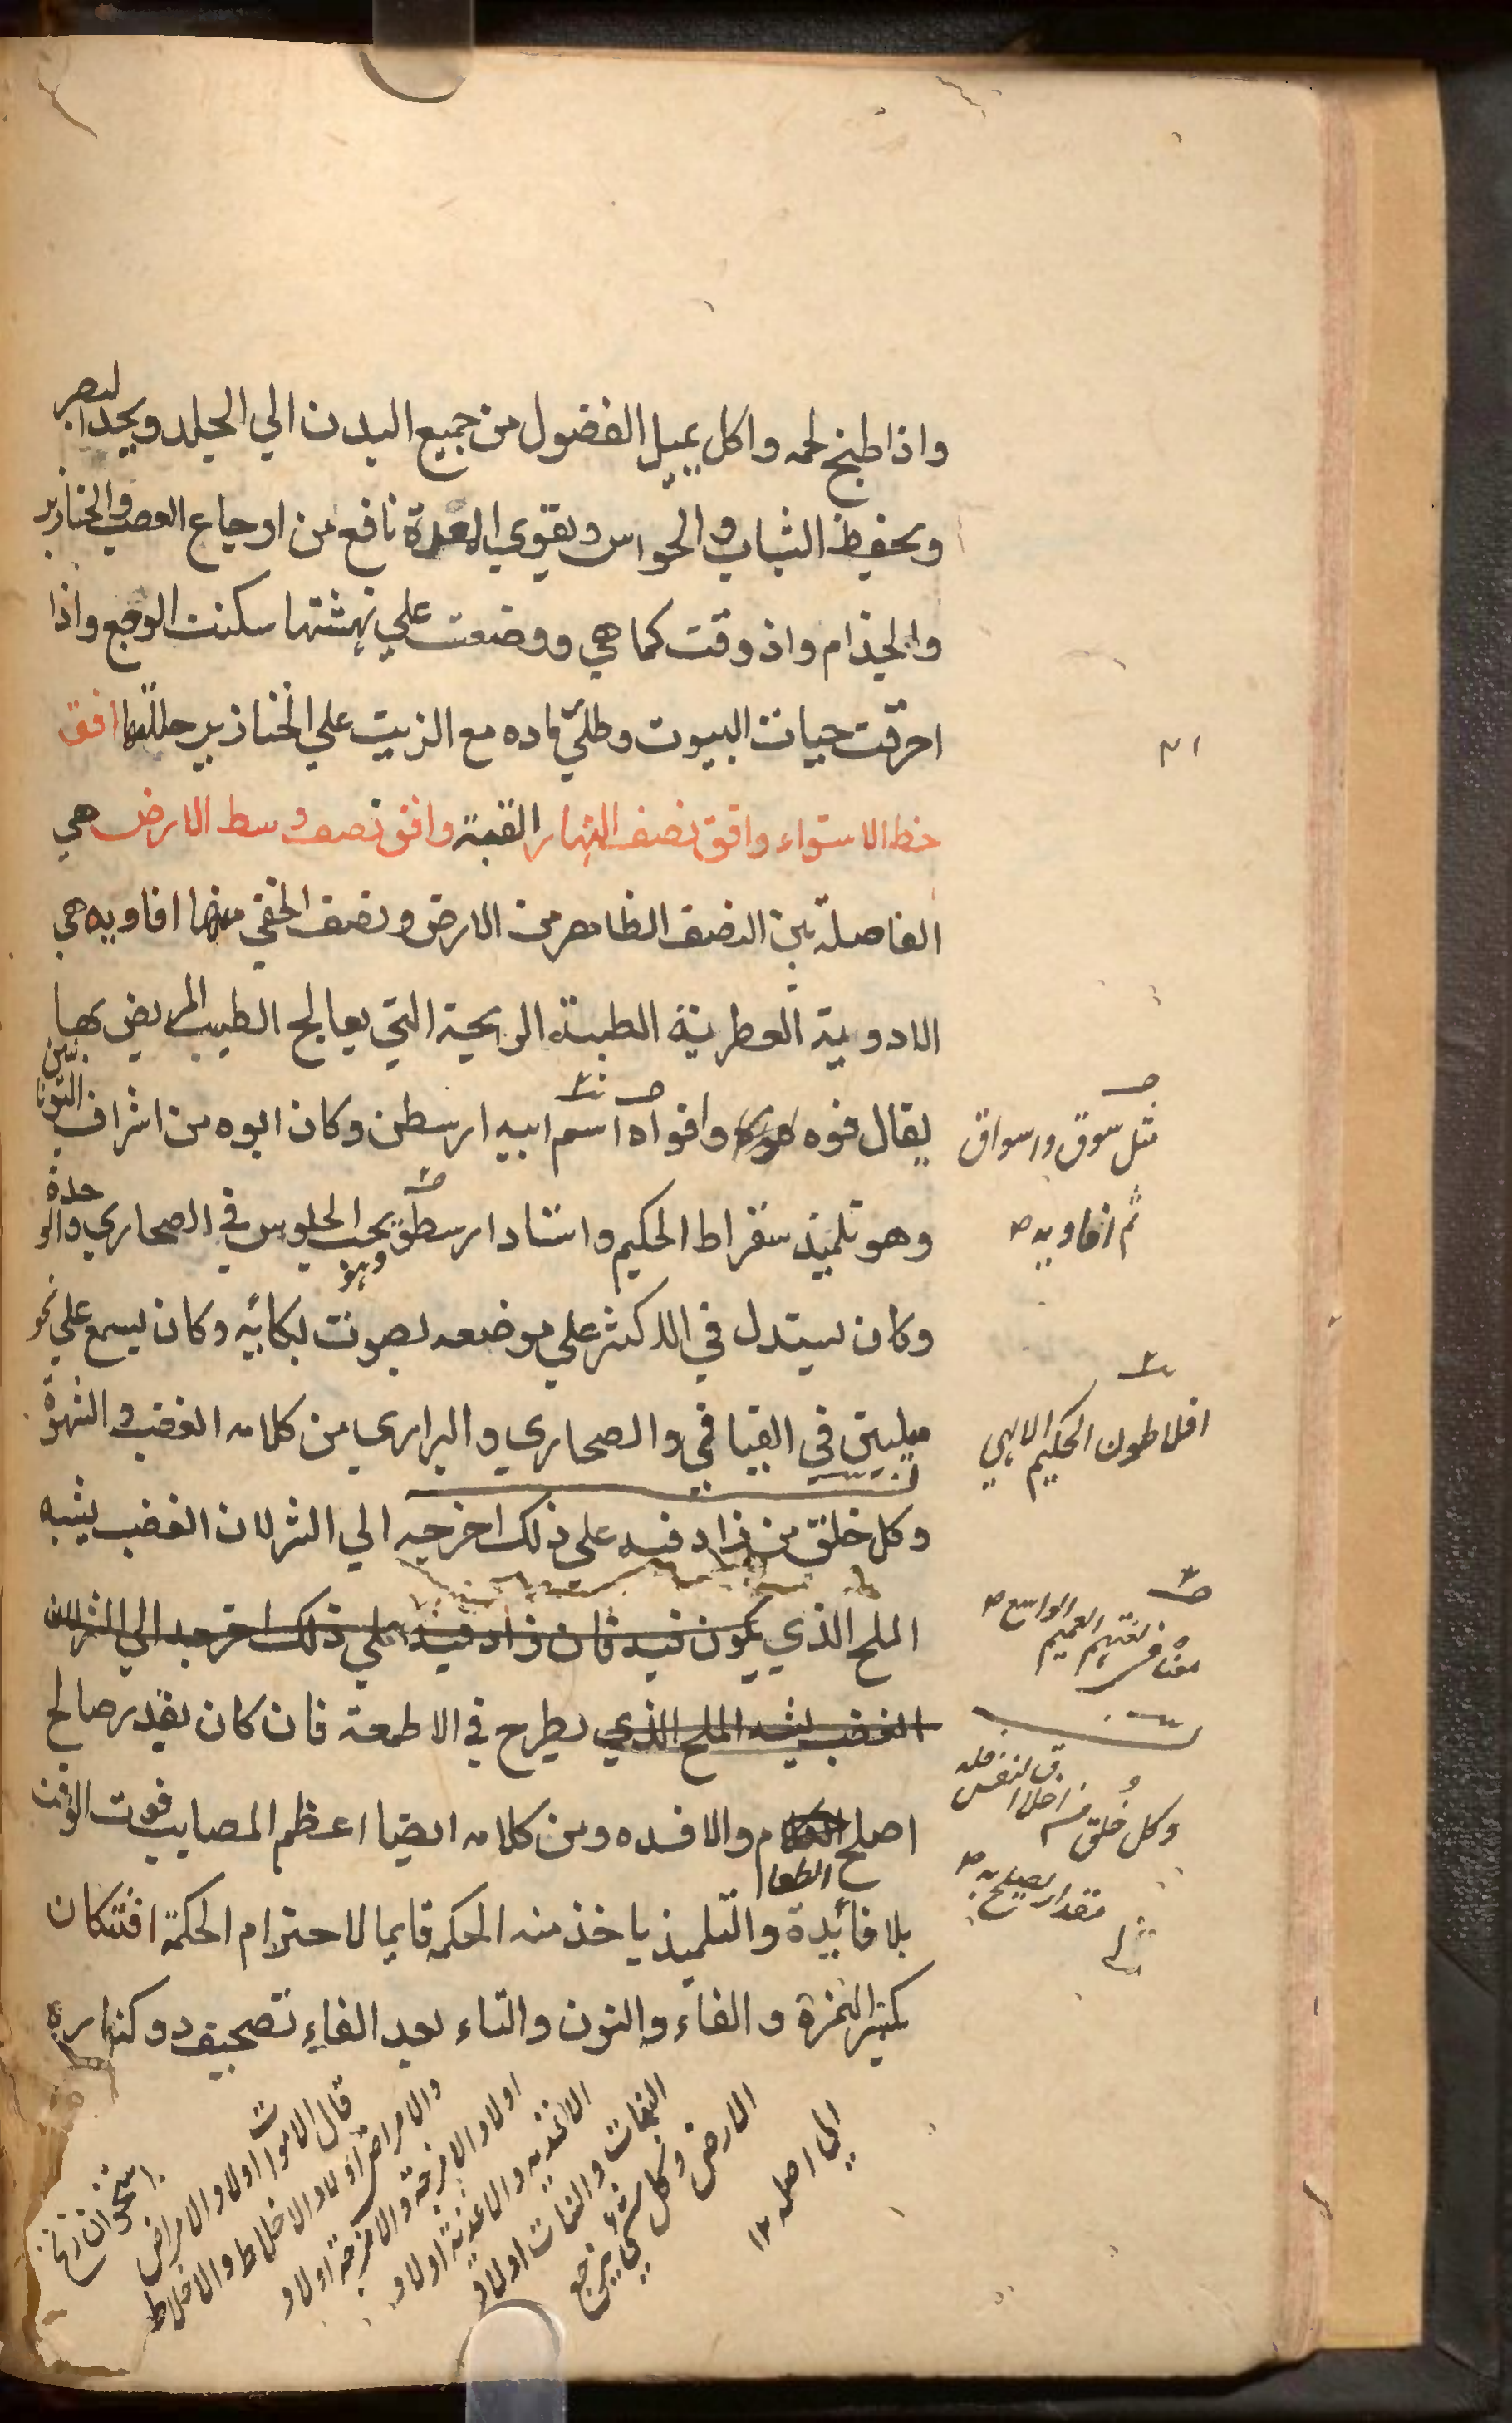 واذا طبخ لحمه واكل يميل الفضول من جميع البدن الي الجلد ويحد البصر
ويحفظ الشباب والحواس ويقوي المعدة نافع من اوجاع العصب والخنازير
والجذام واذ دقت كما هي ووضعت علي نهشتها سكنت الوجع واذا
احرقت حيات البيوت وطلي رماده مع الزيت علي الخنازير حللها افق
خط الاستواء وافق نصف النهار القبة وافق نصف وسط الارض هي
الفاصلة بين النصف الظاهر من الارض ونصف الخفي منها افاويه هي
الادوية العطرية الطيبة الريحية التي يعالج الطبيب المريض بها
يقال فوه وافواه اسم ابيه ارسطن وكان ابوه من اشراف اليونانيين
وهو تلميذ سقراط الحكيم واستاد ارسطو يحب الجلوس في الصحاري والوحدة
وكان يستدل في الاكثر علي موضعه بصوت بكائه وكان يسمع علي نحو
ميلين في الفيافي والصحاري والبراري من كلامه الغضب والشهوة
وكل خلق من زاد فيه علي ذلك اخرجه الي الشر لان الغضب يشبه
الملح الذي يكون فيه فان زاد فيه علي ذلك اخرجه الي الشر لان
الغضب يشبه الملح الذي يطرح في الاطعمة فان كان بقدر صالح
اصلح الطعام والا فسده ومن كلامه ايضا اعظم المصايب فوت الوقت
بلا فائيدة والتلميذ ياخذ منه الحكمه قايما لاحترام الحكمة افتنكان
بكسر الهمزة والفاء والنون والتاء بعد الفاء تصحيف دو كناره
مثل سوق واسواق
ثم افاويه صح
افلاطون الحكيم الالهي
معناه في لغتهم العميم الواسع صح
وكل خلق من اخلاق النفس فله
مقدار يصلح به صح
استخوان زنخ
قال الاموات اولاد الامراض
والامراض اولاد الاخلاط والاخلاط
اولاد الامزجة والامزجة اولاد
الاغذيه والاغذية اولاد
النبات والنبات اولاد
الارض وكل شيء يرجع
الي اصله ١٢